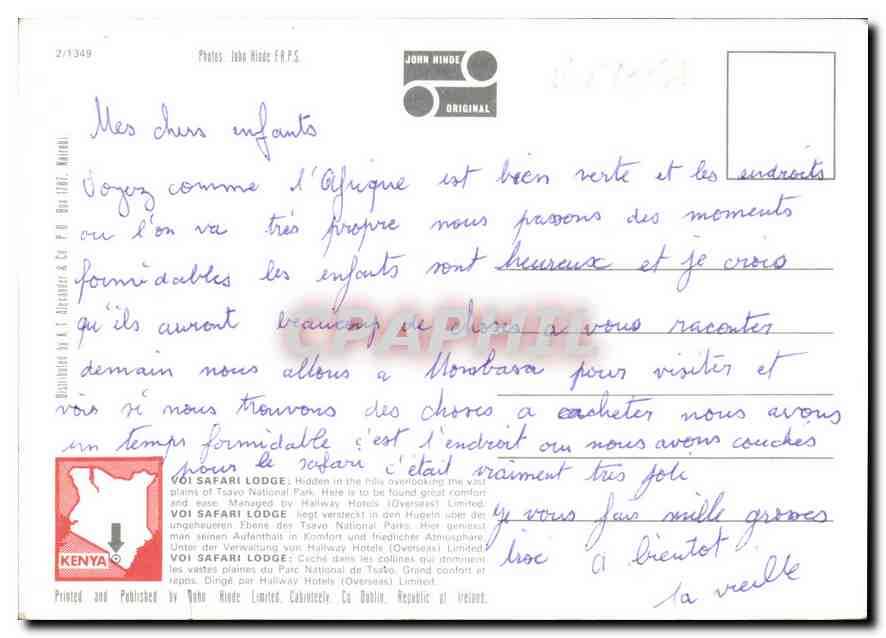 2/1349
Photos: John Hinde F.R.P.S.
JOHN HINDE
ORIGINAL
Distributed by A. T. Alexander & Co P.O. Box 1787, Nairobi
Mes chers enfants
Voyez comme l'Afrique est bien verte et les endroits
ou l'on va très propre nous passons des moments
formidables les enfants sont heureux et je crois
qu'ils auront beaucoup de choses a vous raconter
demain nous allons a Mombasa pour visiter et
voir si nous trouvons des choses a acheter nous avons
un temps formidable c'est l'endroit ou nous avons couchés
pour le safari c'était vraiment très joli
je vous fais mille grosses
a bientot
la vieille
CPAPHIL
KENYA
VOI SAFARI LODGE: Hidden in the hills overlooking the vast
plains of Tsavo National Park. Here is to be found great comfort
and ease. Managed by Hallway Hotels (Overseas) Limited.
VOI SAFARI LODGE: liegt versteckt in den Hügeln über der
ungeheueren Ebene des Tsavo National Parks. Hier geniesst
man seinen Aufenthalt in Komfort und friedlicher Atmosphare.
Unter der Verwaltung von Hallway Hotels (Overseas) Limited.
VOI SAFARI LODGE: Caché dans les collines qui dominent
les vastes plaines du Parc National de Tsavo. Grand confort et
repos. Dirigé par Hallway Hotels (Overseas) Limited.
Printed and Published by John Hinde Limited, Cabinteely, Co Dublin, Republic of Ireland.